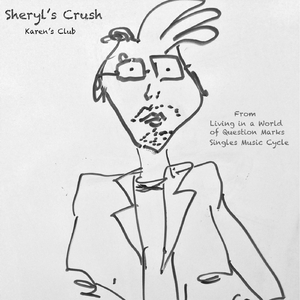 Sheryl's Crush
Karen's Club
From
Living in a World
of Question Marks
Singles Music Cycle